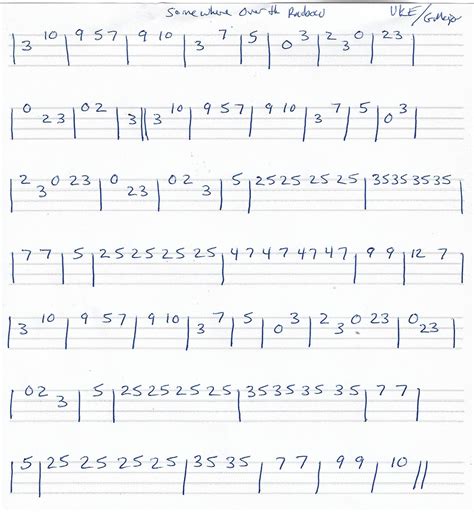 Somewhere Over the Rainbow UKE/G Major
| 3 10 | 9 5 7 | 9 10 | 3 7 | 5 | 0 3 | 2 3 0 | 2 3 |
| 0 2 3 | 0 2 | 3 || 3 10 | 9 5 7 | 9 10 | 3 7 | 5 | 0 3 |
| 2 3 0 2 3 | 0 2 3 | 0 2 3 | 5 | 25 25 25 25 | 35 35 35 35 |
| 7 7 | 5 | 25 25 25 25 | 47 47 47 47 | 9 9 | 12 7 |
| 3 10 | 9 5 7 | 9 10 | 3 7 | 5 | 0 3 | 2 3 0 2 3 | 0 2 3 |
| 0 2 3 | 5 | 25 25 25 25 | 35 35 35 35 | 7 7 |
| 5 | 25 25 25 25 | 35 35 | 7 7 | 9 9 | 10 ||